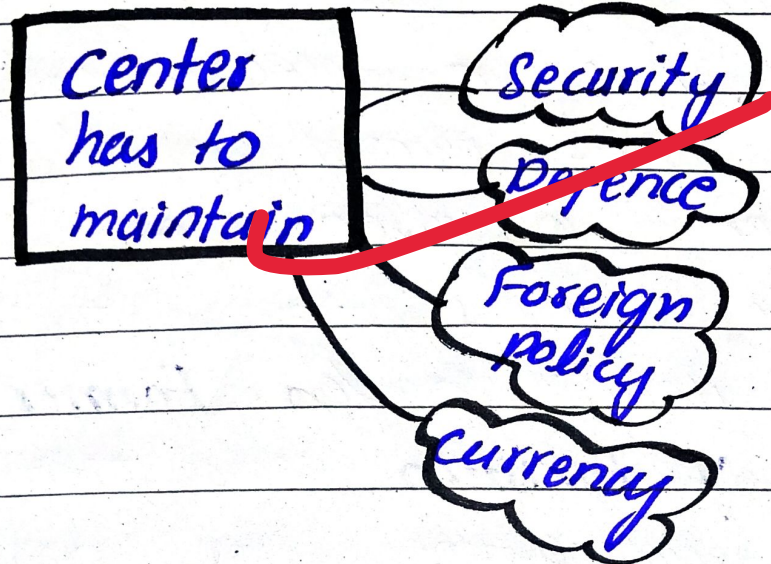 Center
has to
maintain
Security
Defence
Foreign
policy
Currency